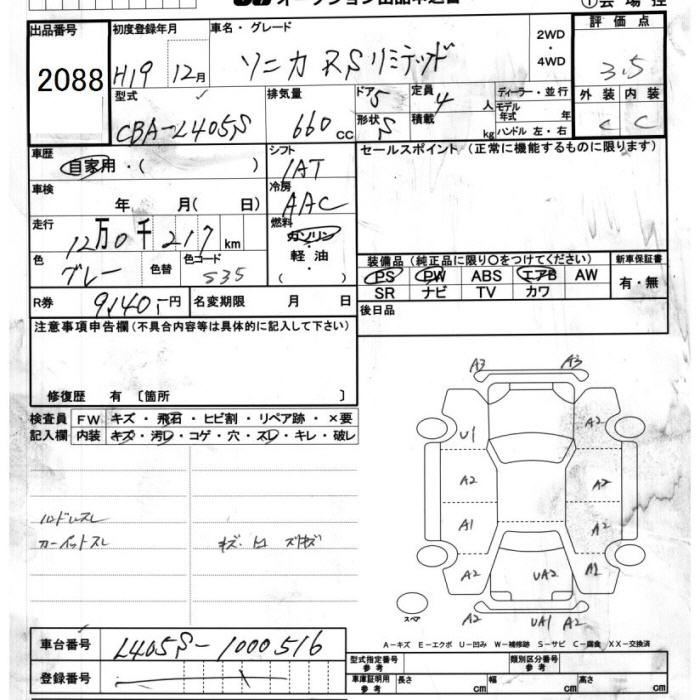 出品番号 2088
初度登録年月 H19 12月
車名・グレード ソニカ RSリミテッド
2WD・4WD
評価点 3.5
外装 C 内装 C
型式 CBA-L405S
排気量 660 CC
ドア 5 形状 S
定員 4 人
積載 kg
ディーラー・並行
モデル年式 年
ハンドル 左・右
車歴 自家用・( )
シフト IAT
セールスポイント (正常に機能するものに限ります)
車検 年 月( 日)
冷房 AAC
走行 12万0千217 km
燃料 ガソリン・軽油・( )
色 グレー 色替 色コード S35
装備品 (純正品に限り○をつけてください) 新車保証書
PS PW ABS エアB AW 有・無
SR ナビ TV カワ
R券 9,140.-円 名変期限 月 日
後日品
注意事項申告欄 (不具合内容等は具体的に記入して下さい)
修復歴 有 〔箇所 〕
検査員 FW キズ・飛石・ヒビ割・リペア跡・×要
記入欄 内装 キズ・汚レ・コゲ・穴・スレ・キレ・破レ
A3 A3
U1 A2
A2 A2
A1 A2
A2 UA2 A1
スペア A2 UA1 A2
車台番号 L405S-1000516
A-キズ E-エクボ U-凹み W-補修跡 S-サビ C-腐食 XX-交換済
登録番号
型式指定番号 参考 類別区分番号 参考
車庫証明用 参考 長さ cm 幅 cm 高さ cm